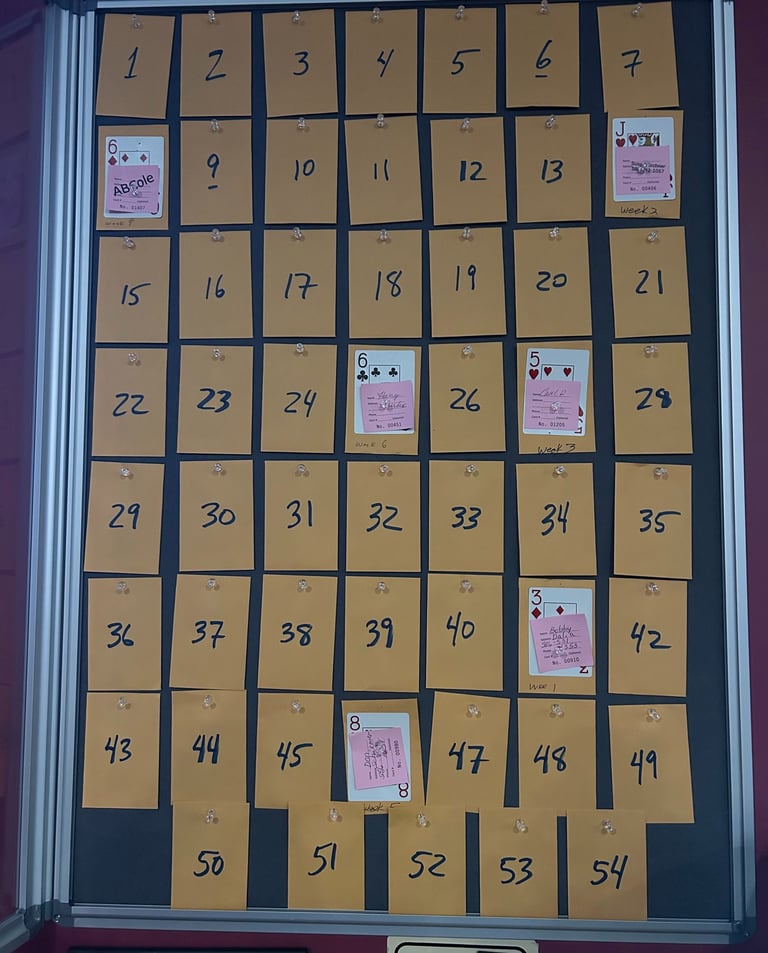 1 2 3 4 5 6 7
6
ABCole
No. 01407
9 10 11 12 13
J
No. 00406
Week 2
15 16 17 18 19 20 21
22 23 24
6
No. 00451
Week 6
26
5
No. 01205
Week 3
28
29 30 31 32 33 34 35
36 37 38 39 40
3
Bobby
No. 00910
Week 1
42
43 44 45
8
8
Week 5
47 48 49
50 51 52 53 54